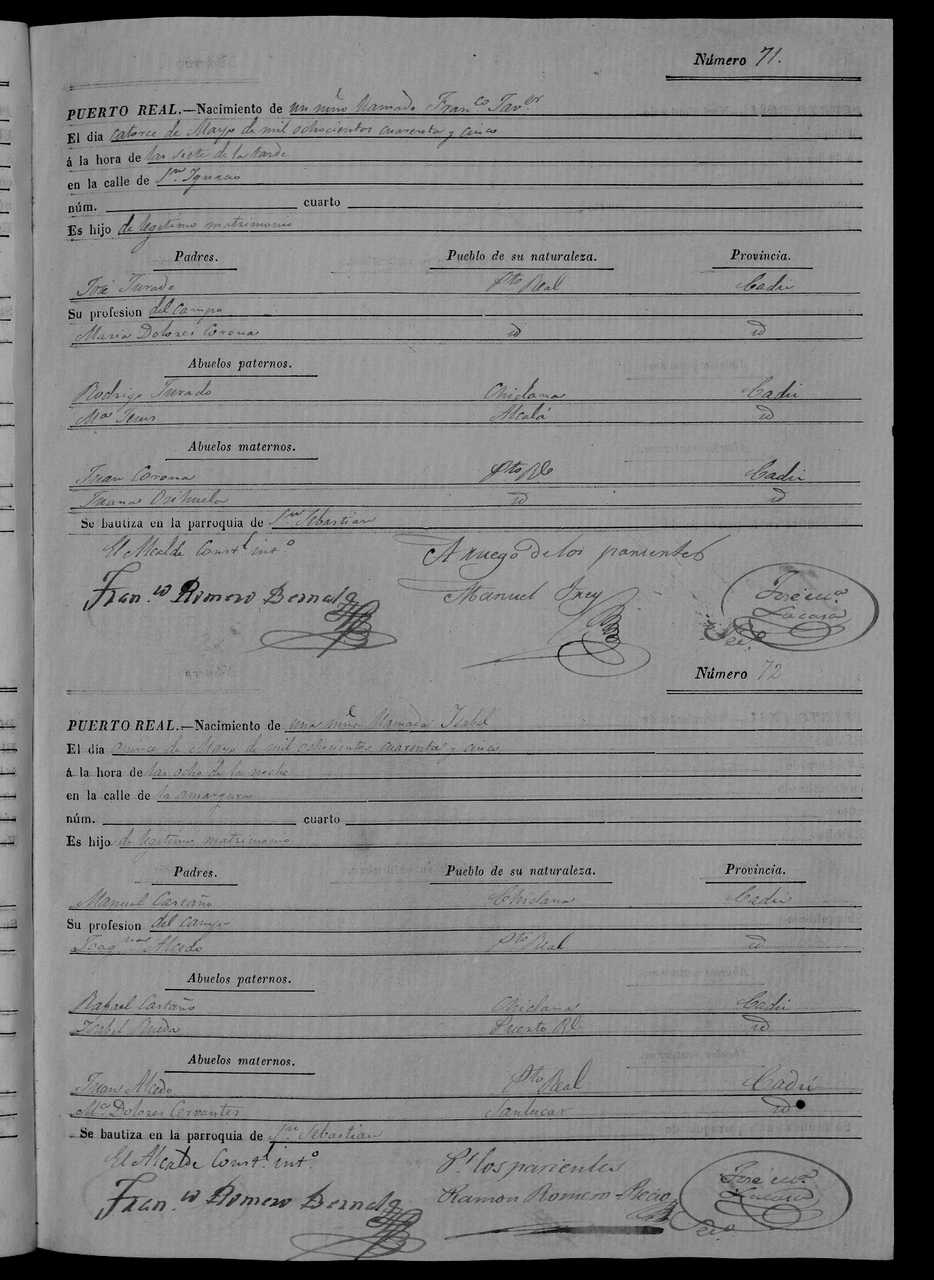 Número 71.
PUERTO REAL.—Nacimiento de un niño llamado Fran.co Jav.er
El dia catorce de Mayo de mil ochocientos cuarenta y cinco
á la hora de las siete de la tarde
en la calle de Sn. Ignacio
núm. cuarto
Es hijo de legitimo matrimonio
Padres. Pueblo de su naturaleza. Provincia.
José Jurado Pto Real Cadiz
Su profesion del campo
Maria Dolores Corona id id
Abuelos paternos.
Rodrigo Jurado Chiclana Cadiz
Ma Alcalá id
Abuelos maternos.
Juan Corona Pto Rl Cadiz
Juana Orihuela id id
Se bautiza en la parroquia de Sn Sebastian
El Alcalde Constl. into
A ruego de los parientes
Fran.co Romero Bernal
Manuel
José Ma. Lacasa
Sec.o
Número 72
PUERTO REAL.—Nacimiento de una niña llamada Isabel
El dia quince de Mayo de mil ochocientos cuarenta y cinco
á la hora de las ocho de la noche
en la calle de la amargura
núm. cuarto
Es hijo de legitimo matrimonio
Padres. Pueblo de su naturaleza. Provincia.
Manuel Castaño Chiclana Cadiz
Su profesion del campo
Joaq.na Alcedo Pto Real id
Abuelos paternos.
Rafael Castaño Chiclana Cadiz
Isabel Puerto Rl. id
Abuelos maternos.
Juan Alcedo Pto Real Cadiz
Ma. Dolores Cervantes Sanlucar id
Se bautiza en la parroquia de Sn. Sebastian
El Alcalde Constl. into.
Pr. los parientes
Fran.co Romero Bernal
Ramon Romero
José Ma. Lacasa
Sec.o